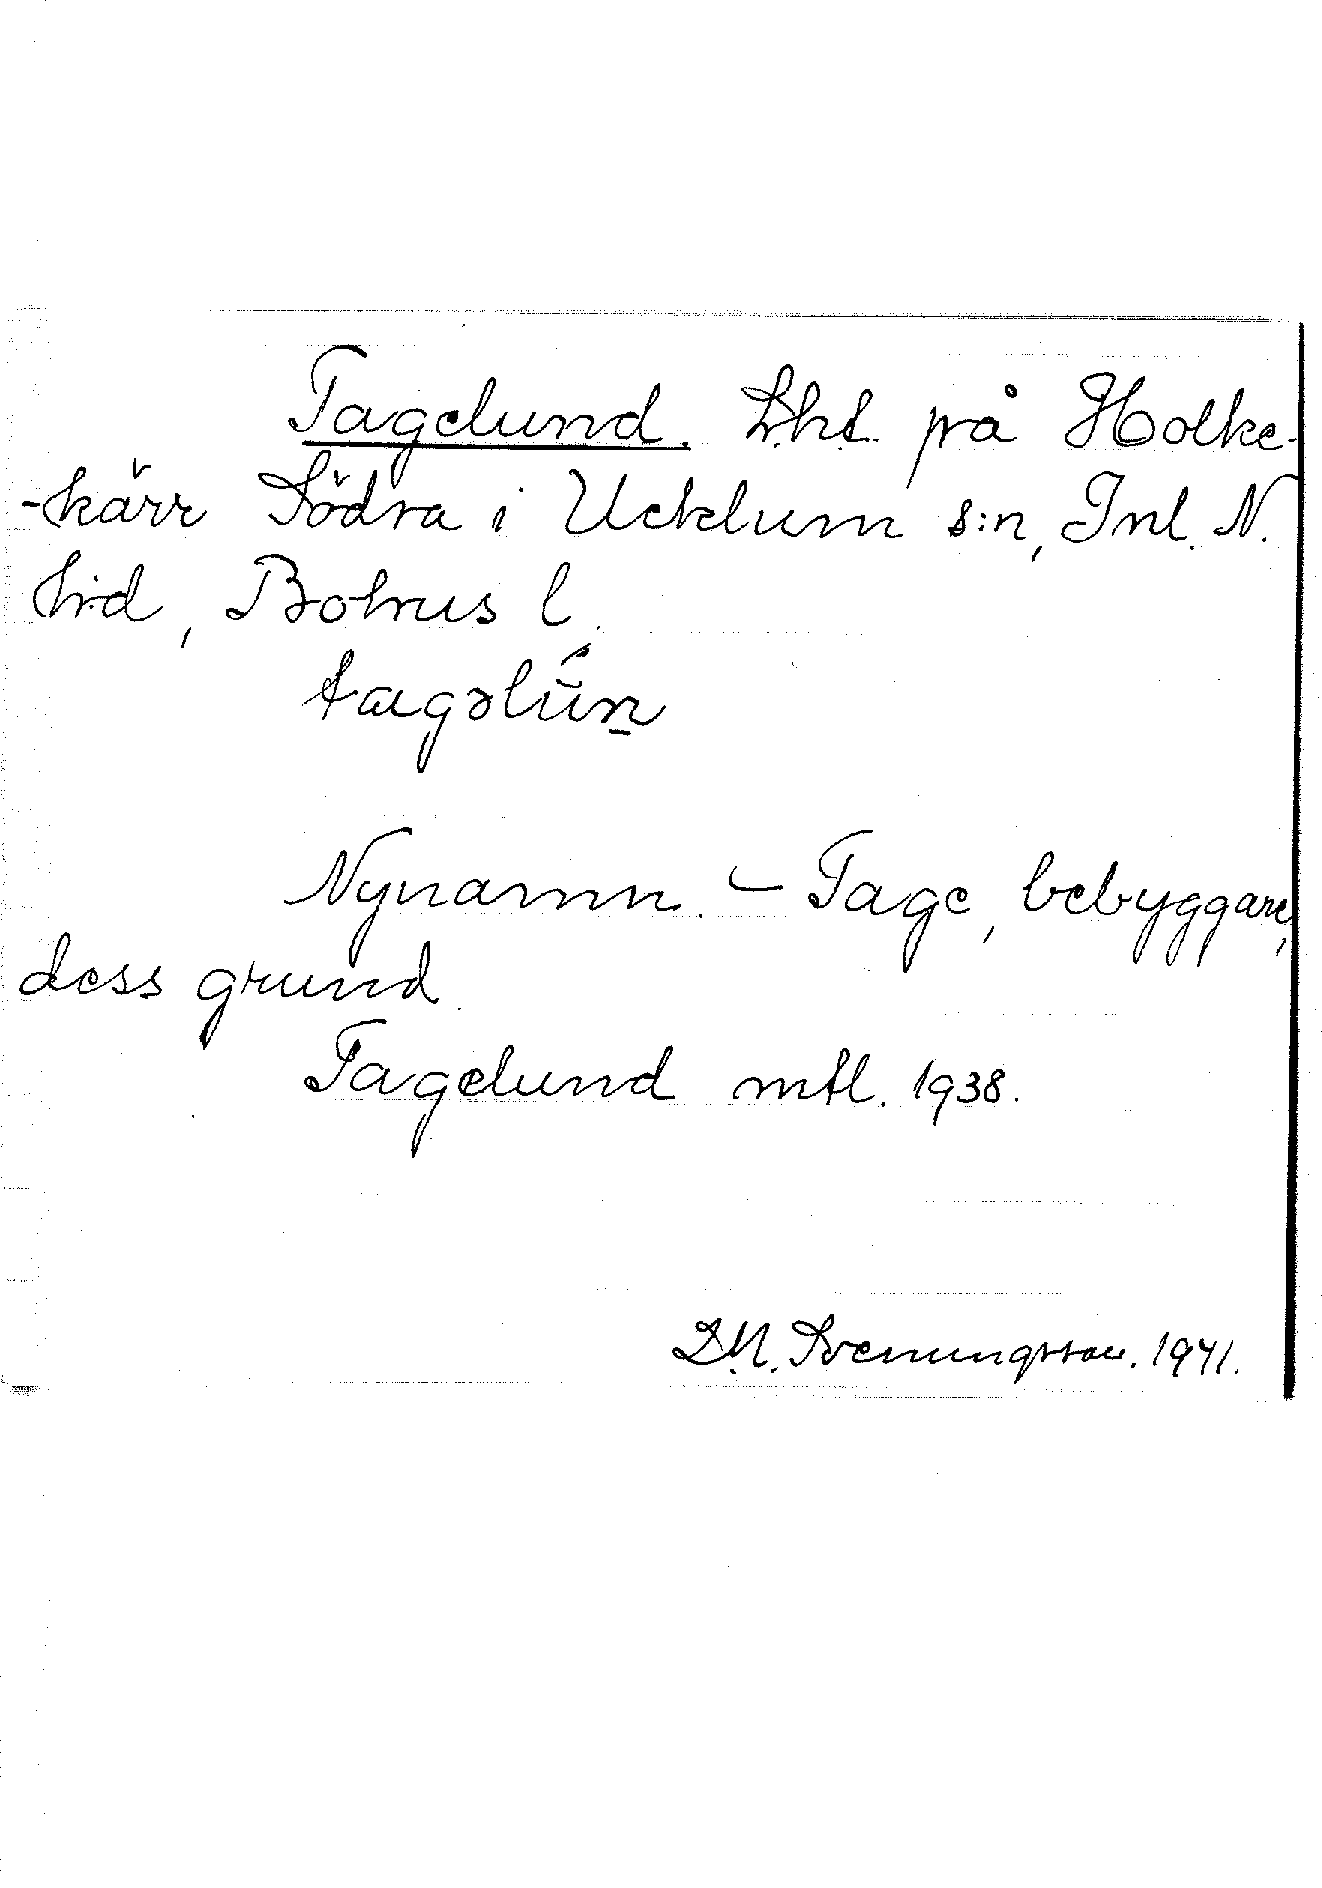 Tagelund. Lht. på Holke-
-kärr Södra i Ucklum s:n, Inl. N.
hrd, Bohus l.
tagəlún
Nynamn. – Tage, bebyggare,
dess grund.
Tagelund mtl. 1938.
Svenungsson. 1941.